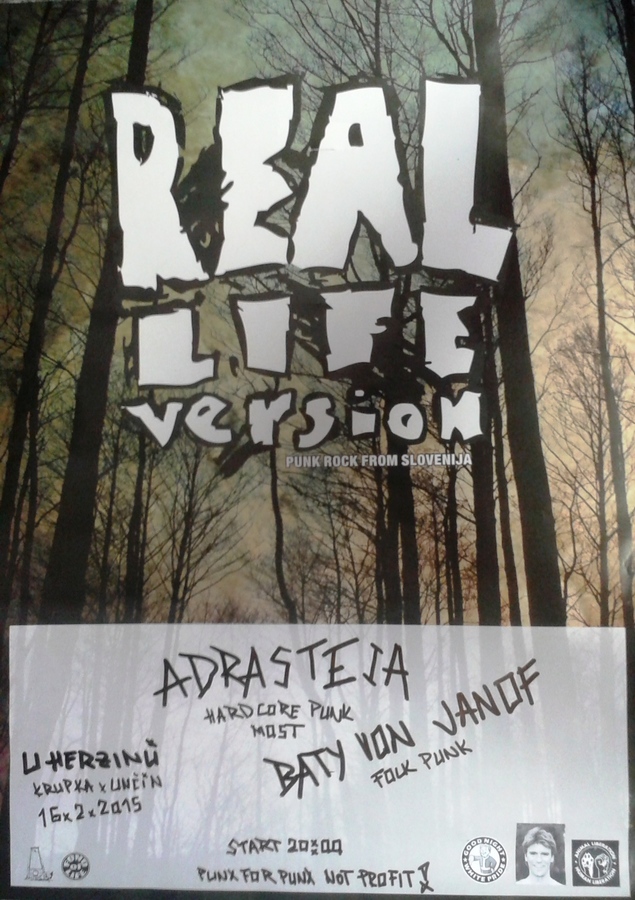 REAL
LIFE
version
PUNK ROCK FROM SLOVENIJA
ADRASTEJA
HARDCORE PUNK
MOST
BATY VON JANOF
FOLK PUNK
U HERZINŮ
KRUPKA x UNČÍN
16x2x2015
START 20:00
PUNX FOR PUNX NOT PROFIT!
GOOD NIGHT
WHITE PRIDE
ANIMAL LIBERATION
HUMAN LIBERATION